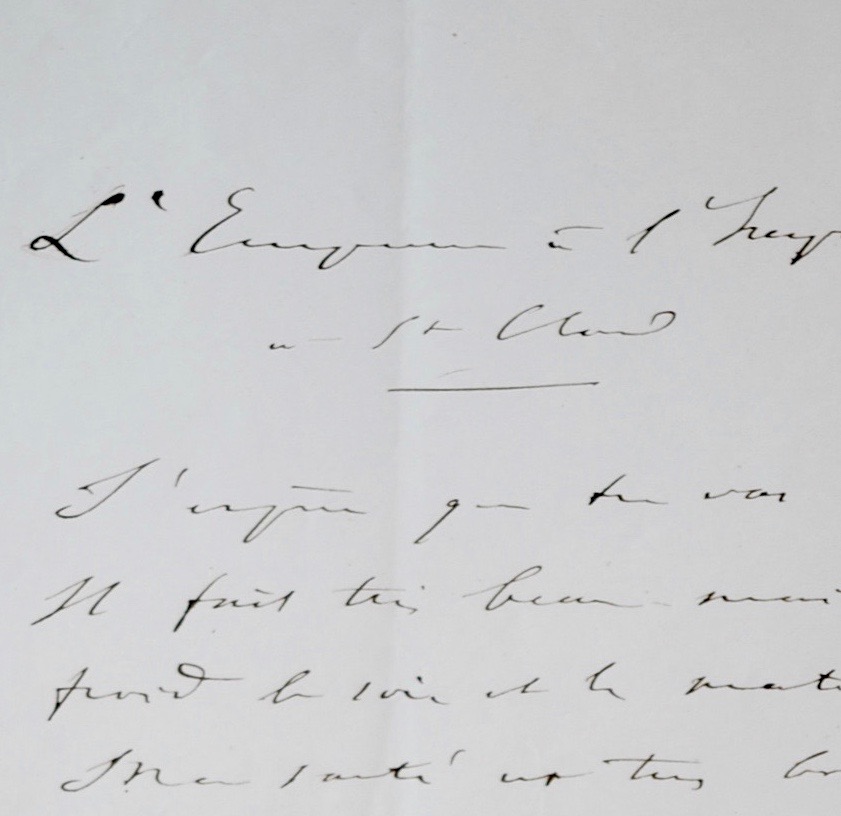 L'Empereur à l'Imp
à St Cloud
J'espère que tu vas
Il fait très beau mai
froid le soir et le mati
Ma santé est très bo